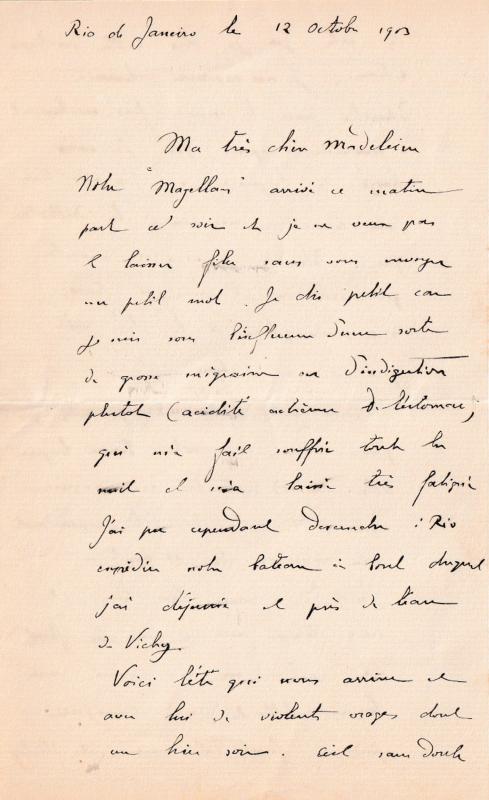 Rio de Janeiro le 12 Octobre 1903
Ma très chère Madeleine
Notre "Magellan" arrivé ce matin
part ce soir et je ne veux pas
le laisser filer sans vous envoyer
un petit mot. Je dis petit car
je suis sous l'influence d'une sorte
de grosse migraine ou d'indigestion
plutot (acidité extrême de l'estomac)
qui m'a fait souffrir toute la
nuit et m'a laissé très fatigué
J'ai pu cependant descendre à Rio
expédier notre bateau à bord duquel
j'ai déjeuné et pris de l'eau
de Vichy.
Voici l'été qui nous arrive et
avec lui de violents orages dont
un hier soir. C'est sans doute